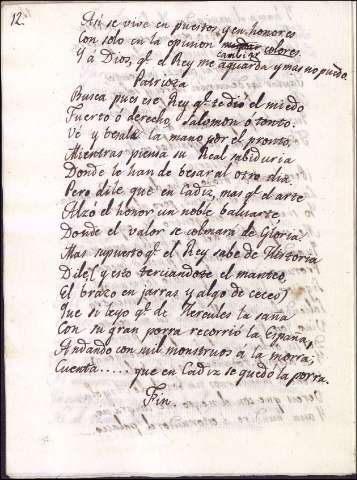 12.
Asi se vive en puestos, y en honores
Con solo en la opinion mudar colores
cambiar
Y á Dios, q.e el Rey me aguarda y mas no puedo.
Patrioza
Busca pues ese Rey q.e te dió el miedo
Tuerto ó derecho, Salomon ó tonto.
Vé y besala la mano por el pronto,
Mientras piensa su Real sabiduria
Donde le han de besar al otro dia.
Pero dile, que en Cadiz, mas q.e el arte
Alzó el honor un noble baluarte
Donde el valor se colmará de Gloria.
Mas supuesto q.e el Rey sabe de Historia
Dile (y esto terciandose el manteo,
El brazo en jarras y algo de ceceo)
Que si leyo q.e de Hercules la saña
Con su gran porra recorrió la España,
Andando con mil monstruos á la morra;
Cuenta..... que en Cadiz se quedó la porra.
Fin.